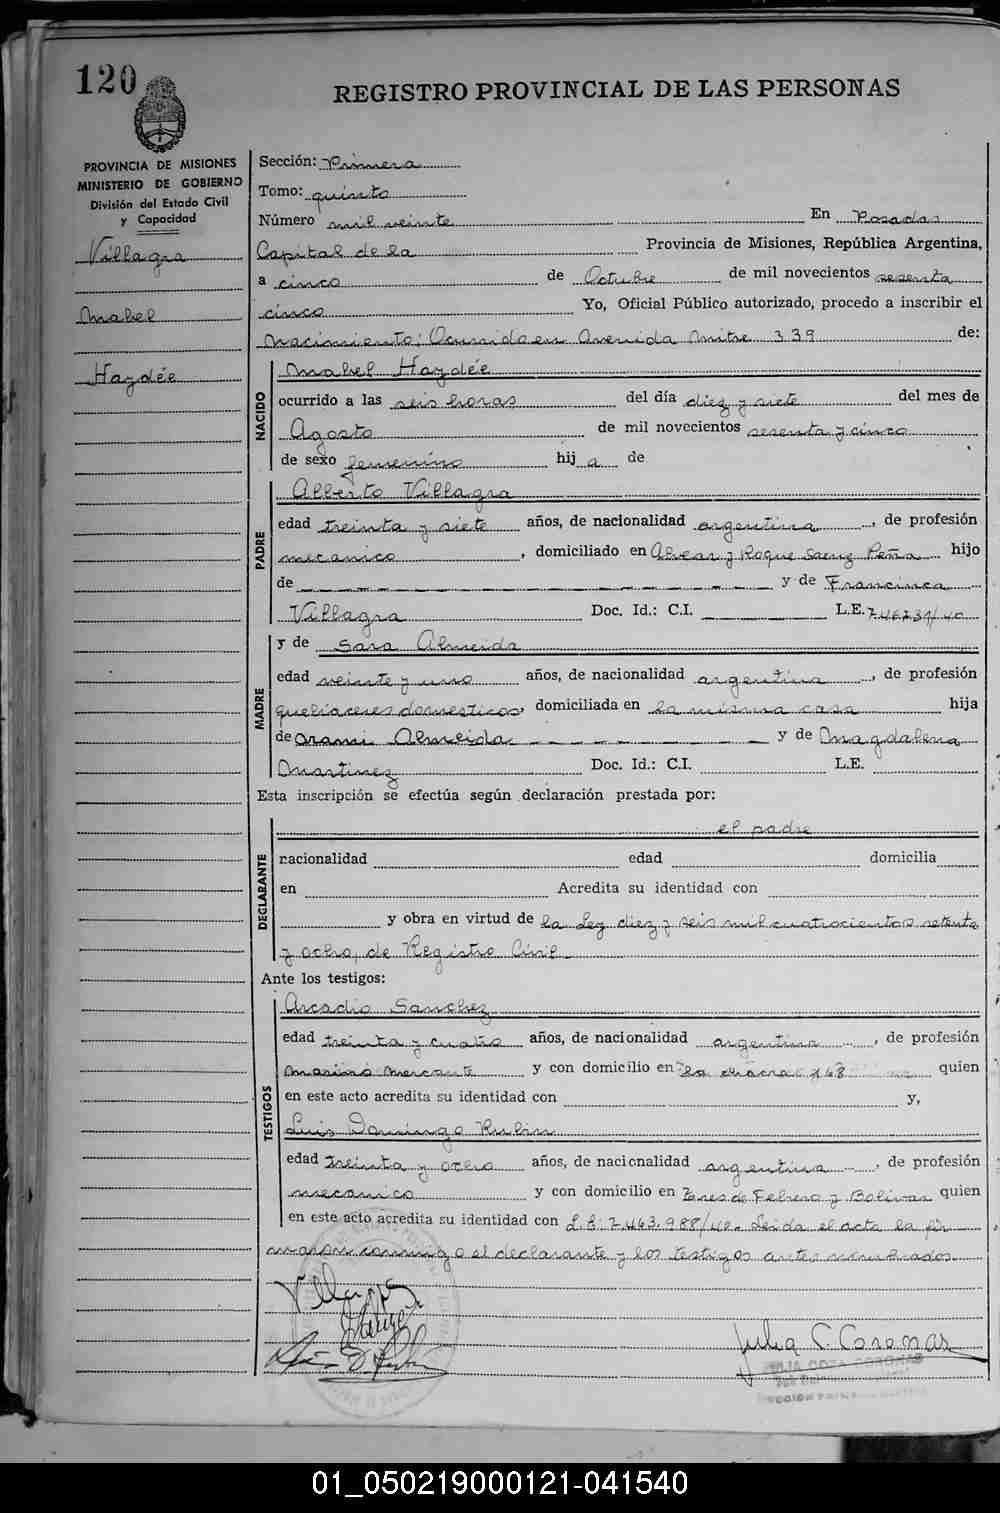 120
REGISTRO PROVINCIAL DE LAS PERSONAS
PROVINCIA DE MISIONES
MINISTERIO DE GOBIERNO
División del Estado Civil
y Capacidad
Villagra
Mabel
Haydée
Sección: Primera
Tomo: quinto
Número mil veinte En Posadas
Capital de la Provincia de Misiones, República Argentina,
a cinco de Octubre de mil novecientos sesenta
cinco Yo, Oficial Público autorizado, procedo a inscribir el
Nacimiento; Ocurrido en Avenida Mitre 339 de:
NACIDO
Mabel Haydée
ocurrido a las seis horas del día diez y siete del mes de
Agosto de mil novecientos sesenta y cinco
de sexo femenino hija de
PADRE
Alberto Villagra
edad treinta y siete años, de nacionalidad argentina, de profesión
mecanico, domiciliado en Alvear y Roque Saenz Peña hijo
de y de Francisca
Villagra Doc. Id.: C.I. L.E. 7.46739/40
MADRE
y de Sara Almeida
edad veinte y uno años, de nacionalidad argentina, de profesión
quehaceres domesticos, domiciliada en la misma casa hija
de Orami Almeida y de Magdalena
Martinez Doc. Id.: C.I. L.E.
Esta inscripción se efectúa según declaración prestada por:
DECLARANTE
el padre
nacionalidad edad domicilia
en Acredita su identidad con
y obra en virtud de la Ley diez y seis mil cuatrocientos setenta
y ocho, de Registro Civil
Ante los testigos:
TESTIGOS
Arcadio Sanchez
edad treinta y cuatro años, de nacionalidad argentina, de profesión
marino mercante y con domicilio en la chacra 168 quien
en este acto acredita su identidad con y,
Luis Domingo Rubin
edad treinta y ocho años, de nacionalidad argentina, de profesión
mecanico y con domicilio en Tres de Febrero y Bolivar quien
en este acto acredita su identidad con L.E. 7.463.988/40. Leida el acta la fir
maron conmigo el declarante y los testigos antes nombrados.
Villagra
Julia C. Coronas
JULIA COZA CORONAS
01_050219000121-041540